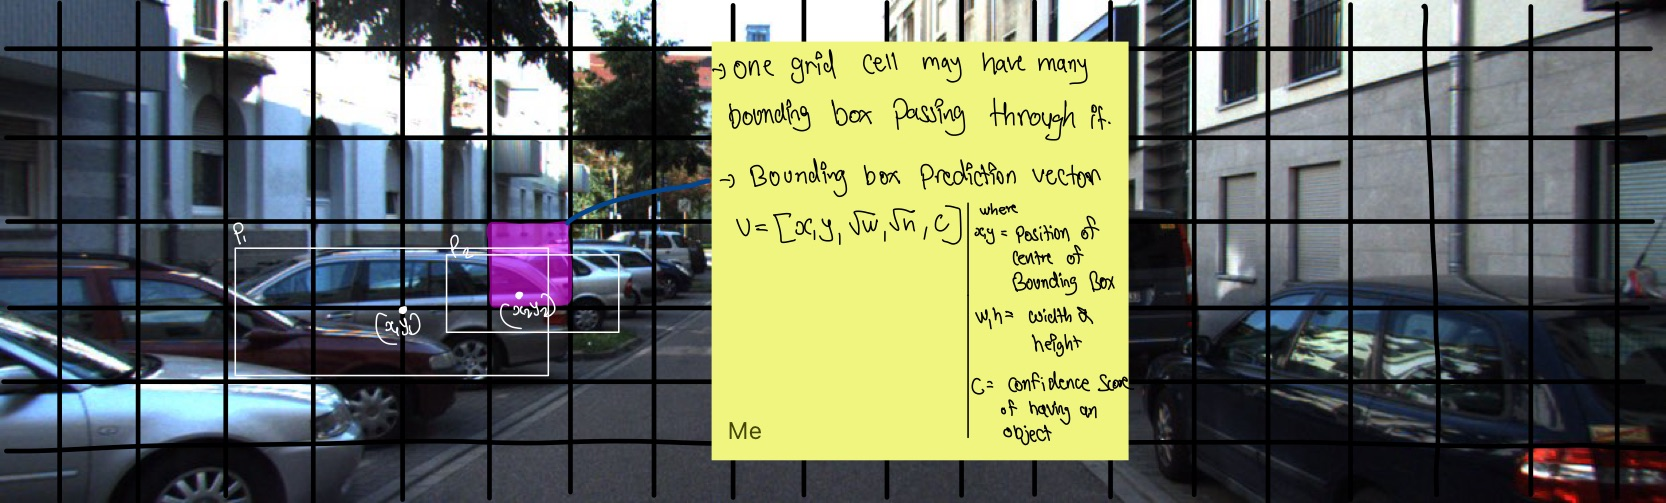 → one grid cell may have many
bounding box passing through it.
→ Bounding box prediction vector
V = [x, y, √w, √h, c]
where
x,y = Position of
centre of
Bounding Box
w,h = width &
height
C = confidence score
of having an
object
Me
P₁
P₂
(x₁y₁)
(x₂y₂)